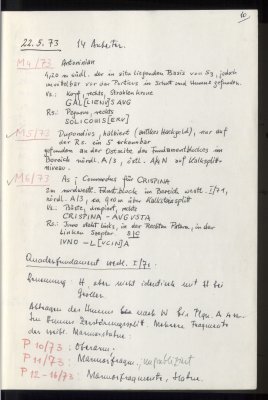 60
22.5.73 14 Arbeiter.
M4/73 Antoninian
4,20 m südl. der in situ liegenden Basis von S3, jedoch
unmittelbar vor der Porticus im Schutt und Humus gefunden.
Vs.: Kopf, rechts, Strahlenkrone
GAL[LIENV]S AVG
Rs.: Pegasus, rechts
SOLI CONS[ERV]
M5/73 Dupondius, halbiert (antikes Hackgeld), nur auf
der Rs. ein S erkennbar
gefunden an der Ostseite des Fundamentblockes im
Bereich nördl. A/3, östl. A/N auf Kalksplitt-
niveau.
M6/73 As; Commodus für CRISPINA
Im nordwestl. Fdmt.block im Bereich westl. I/71,
nördl. A/3, ca. 910 m über Kalksteinsplitt
Vs.: Büste, drapiert, rechts
CRISPINA - AVGVSTA
Rs.: Juno steht links, in der Rechten Patera, in der
linken Szepter SIC
IVNO - L[VCIN]A
Quaderfundament westl. I/71.
Benennung: H aber nicht identisch mit H bei
Groller.
Abtragen des Humus bis nach W
Im Humus Zerstörungsschutt. Mehrere Fragmente
der weibl. Marmorstatue:
P 10/73: Oberarm.
P 11/73: Marmorfragm., unpubliziert
P 12-16/73: Marmorfragmente, Statue.